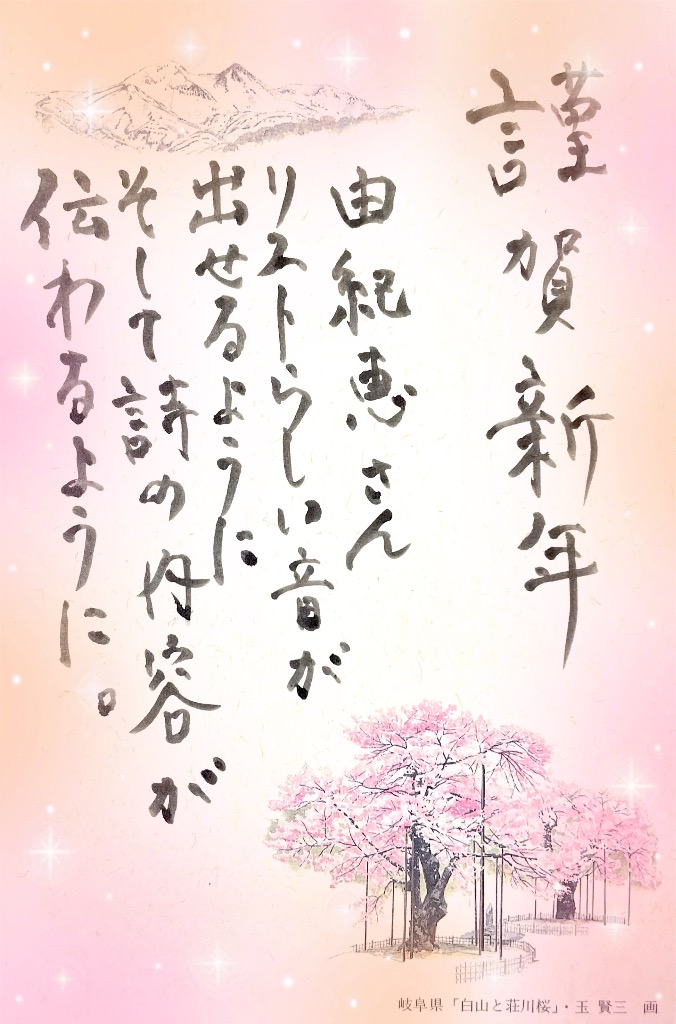 謹賀新年
由紀恵さん
リストらしい音が
出せるように
そして詩の内容が
伝わるように。
岐阜県「白山と荘川桜」・玉 賢三 画